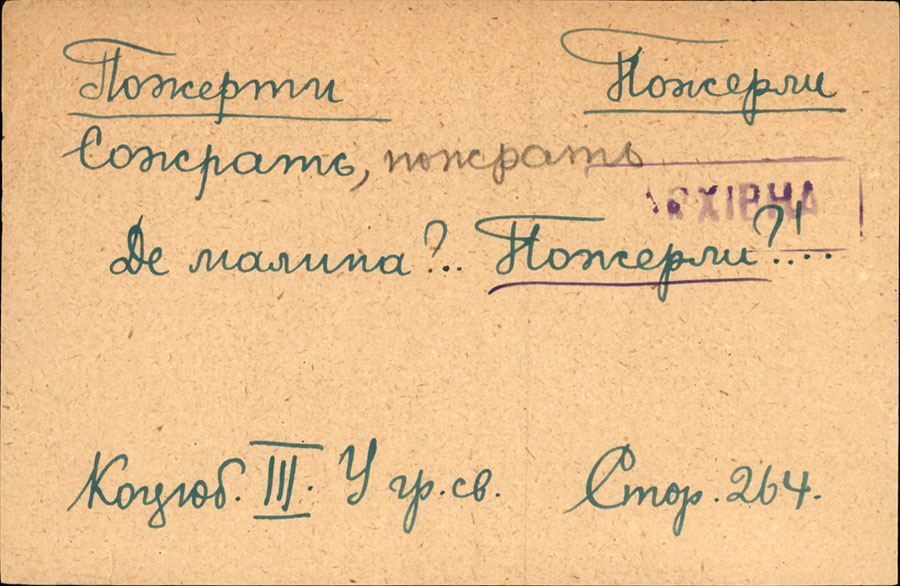 Пожерти Пожерли
Сожрать, пожрать
АРХІВНА
Де малина?.. Пожерли?!....
Коцюб. III. У гр.св. Стор. 264.